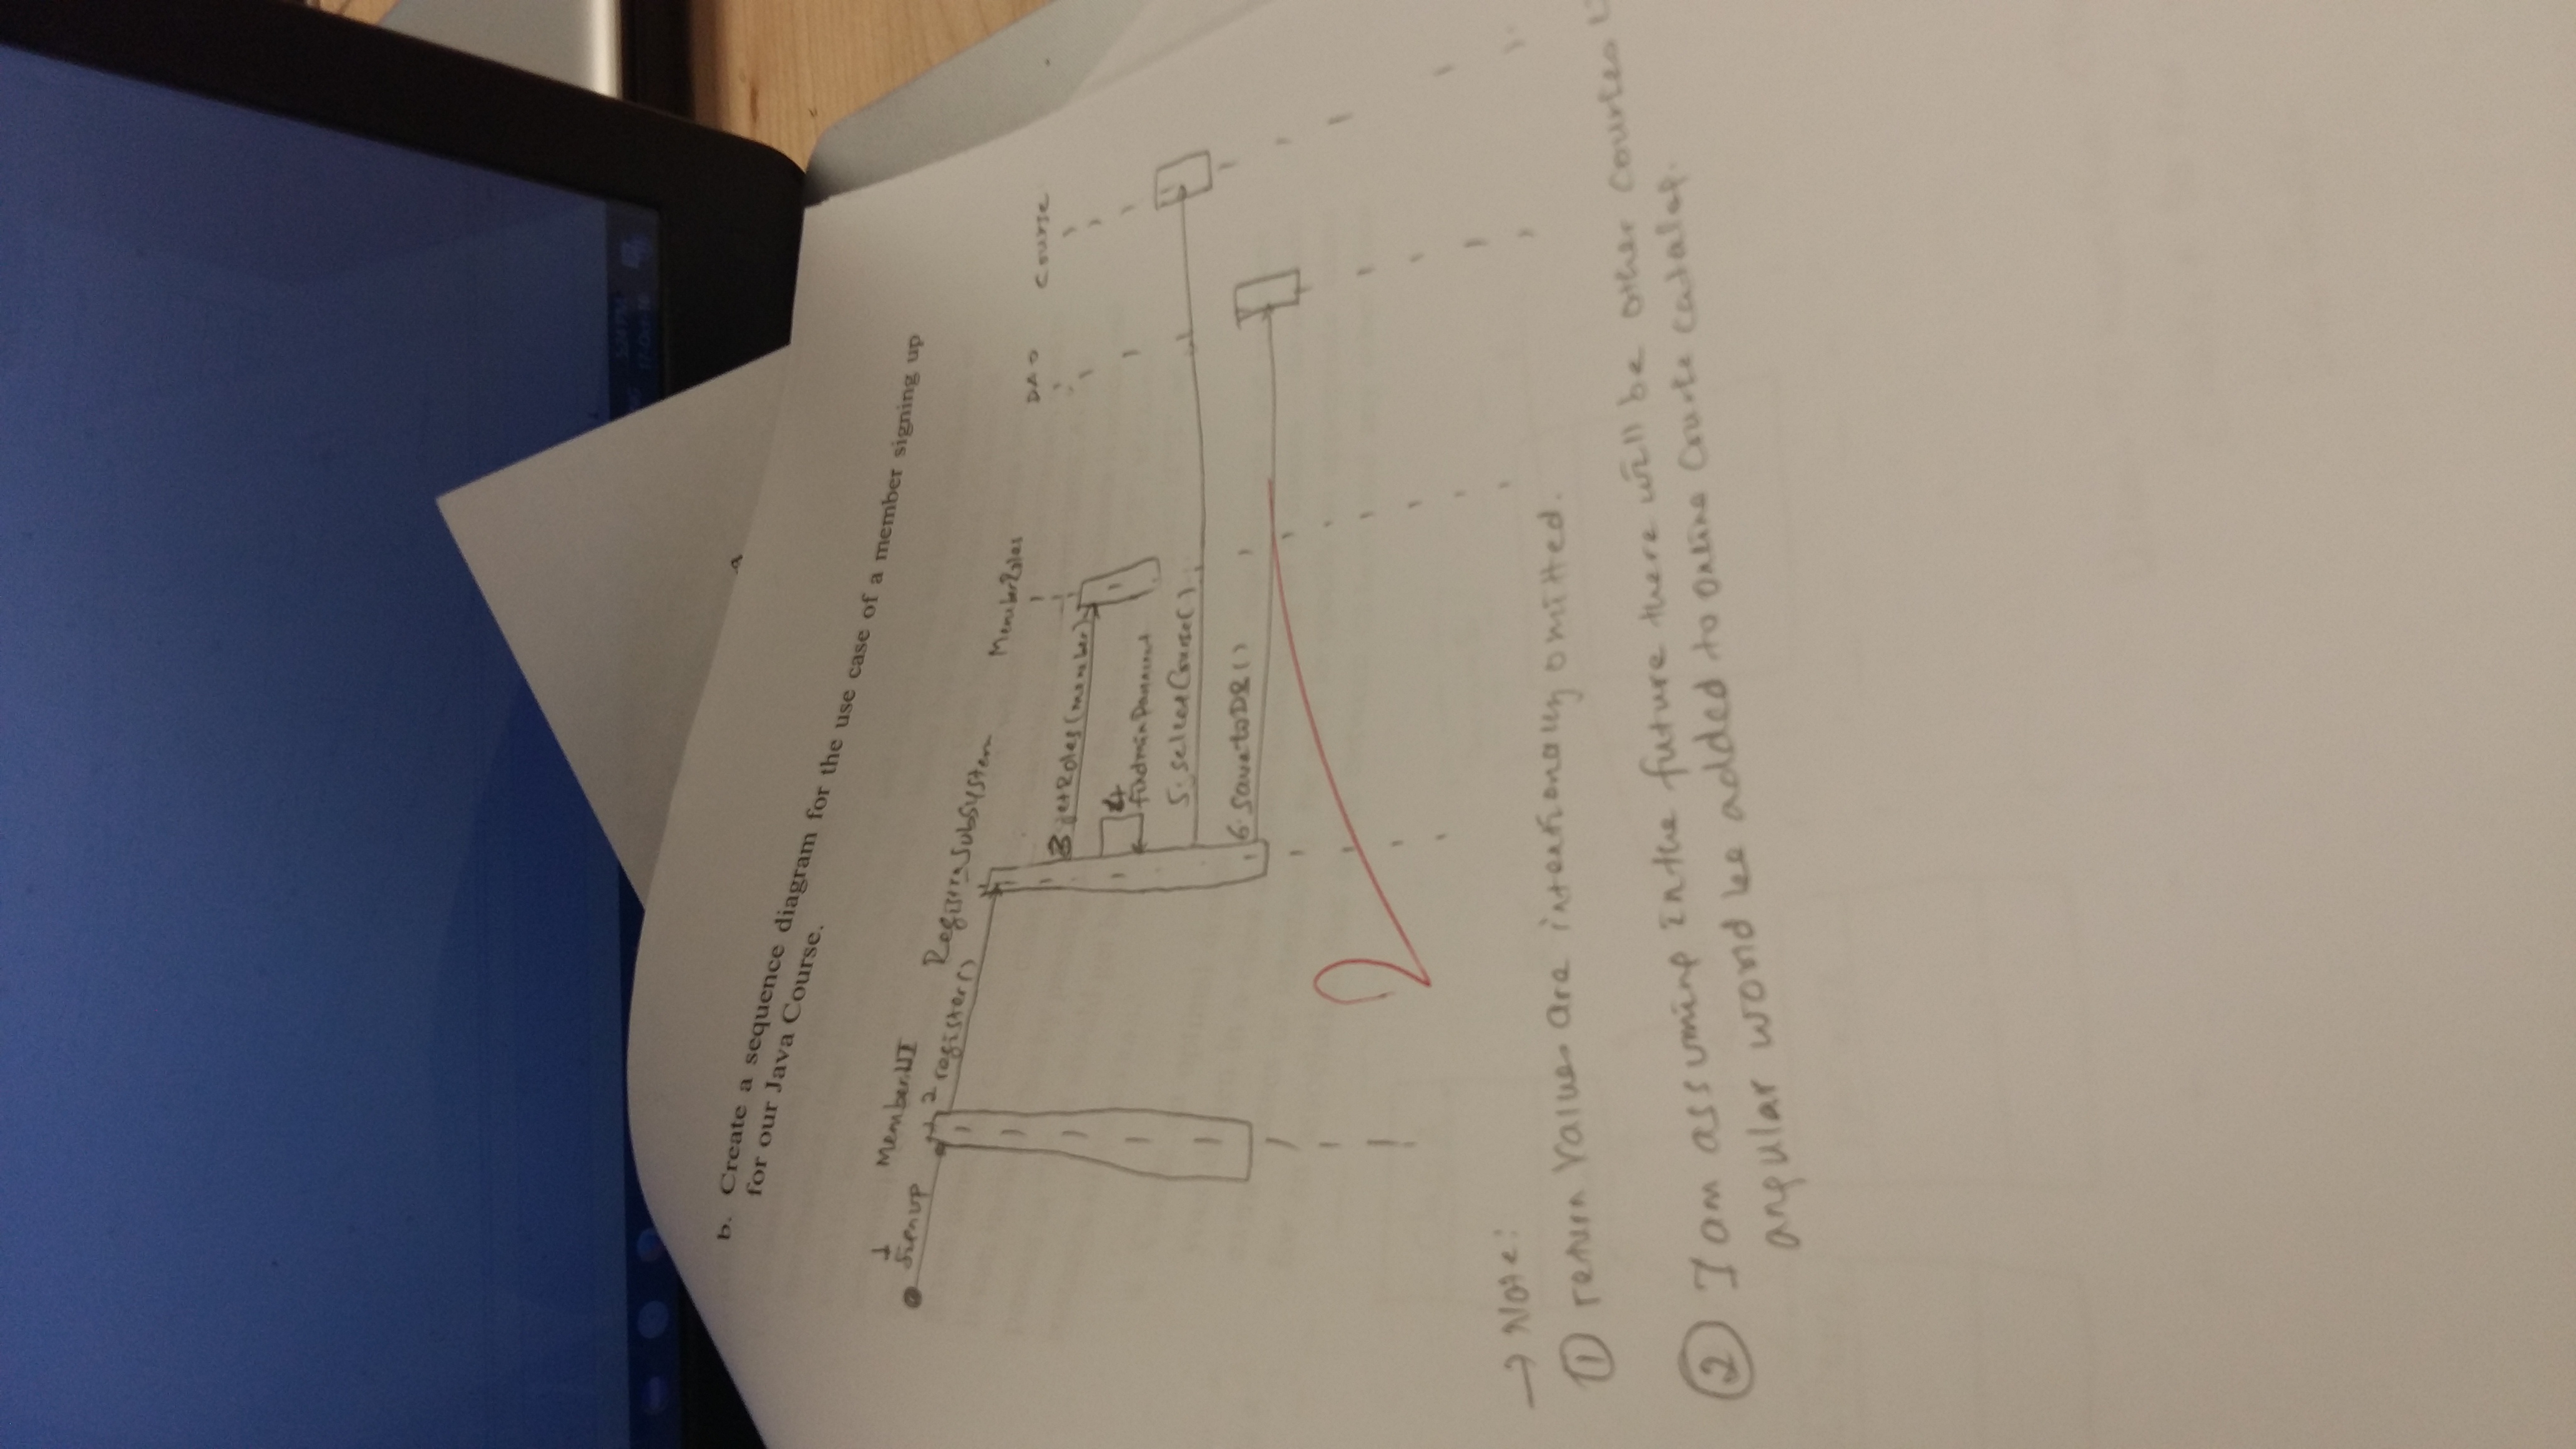 5:24 PM
17-Oct-16
b. Create a sequence diagram for the use case of a member signing up
for our Java Course.
1
Signup
MemberUI
2 register()
RegistraSubSystem
MemberRoles
DAO
Course
3 getRoles(member)
4
5. selectCourse()
6. SavetoDB()
→ Note:
① return Values are intentionally omitted.
② I am assuming in the future there will be other courses
angular would be added to online Course catalog.